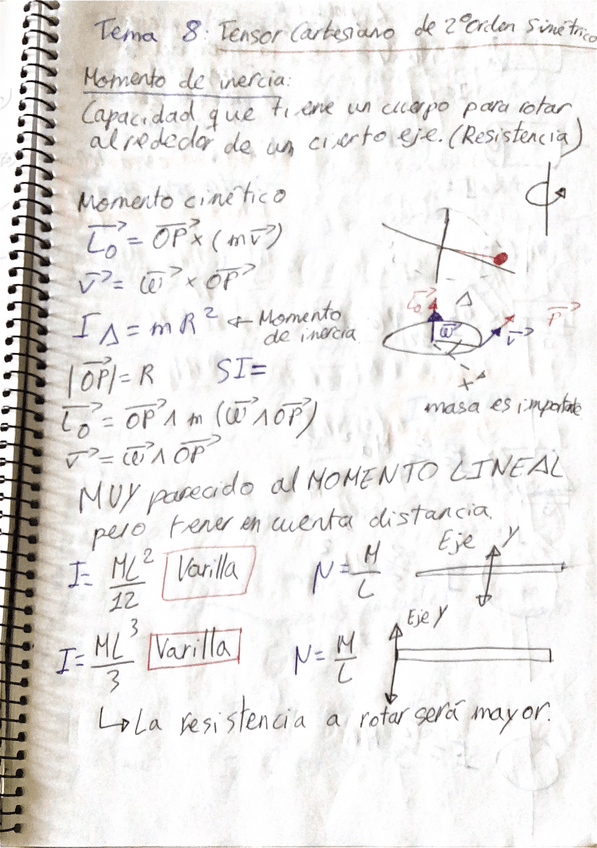 Tema 8: Tensor Cartesiano de 2º Orden Simétrico
Momento de inercia:
Capacidad que tiene un cuerpo para rotar
alrededor de un cierto eje. (Resistencia)
Momento cinético
L⃗o = OP⃗ × (m v⃗)
v⃗ = ω⃗ × OP⃗
I_Δ = mR² ← Momento de inercia
|OP⃗| = R SI=
L⃗o = OP⃗ ∧ m (ω⃗ ∧ OP⃗)
v⃗ = ω⃗ ∧ OP⃗
L⃗o Δ
ω⃗ v⃗
masa es importate
MUY parecido al MOMENTO LINEAL
pero tener en cuenta distancia.
I = ML²/12 Varilla N = M/L Eje Y
I = ML³/3 Varilla N = M/L Eje Y
↳ La resistencia a rotar será mayor.